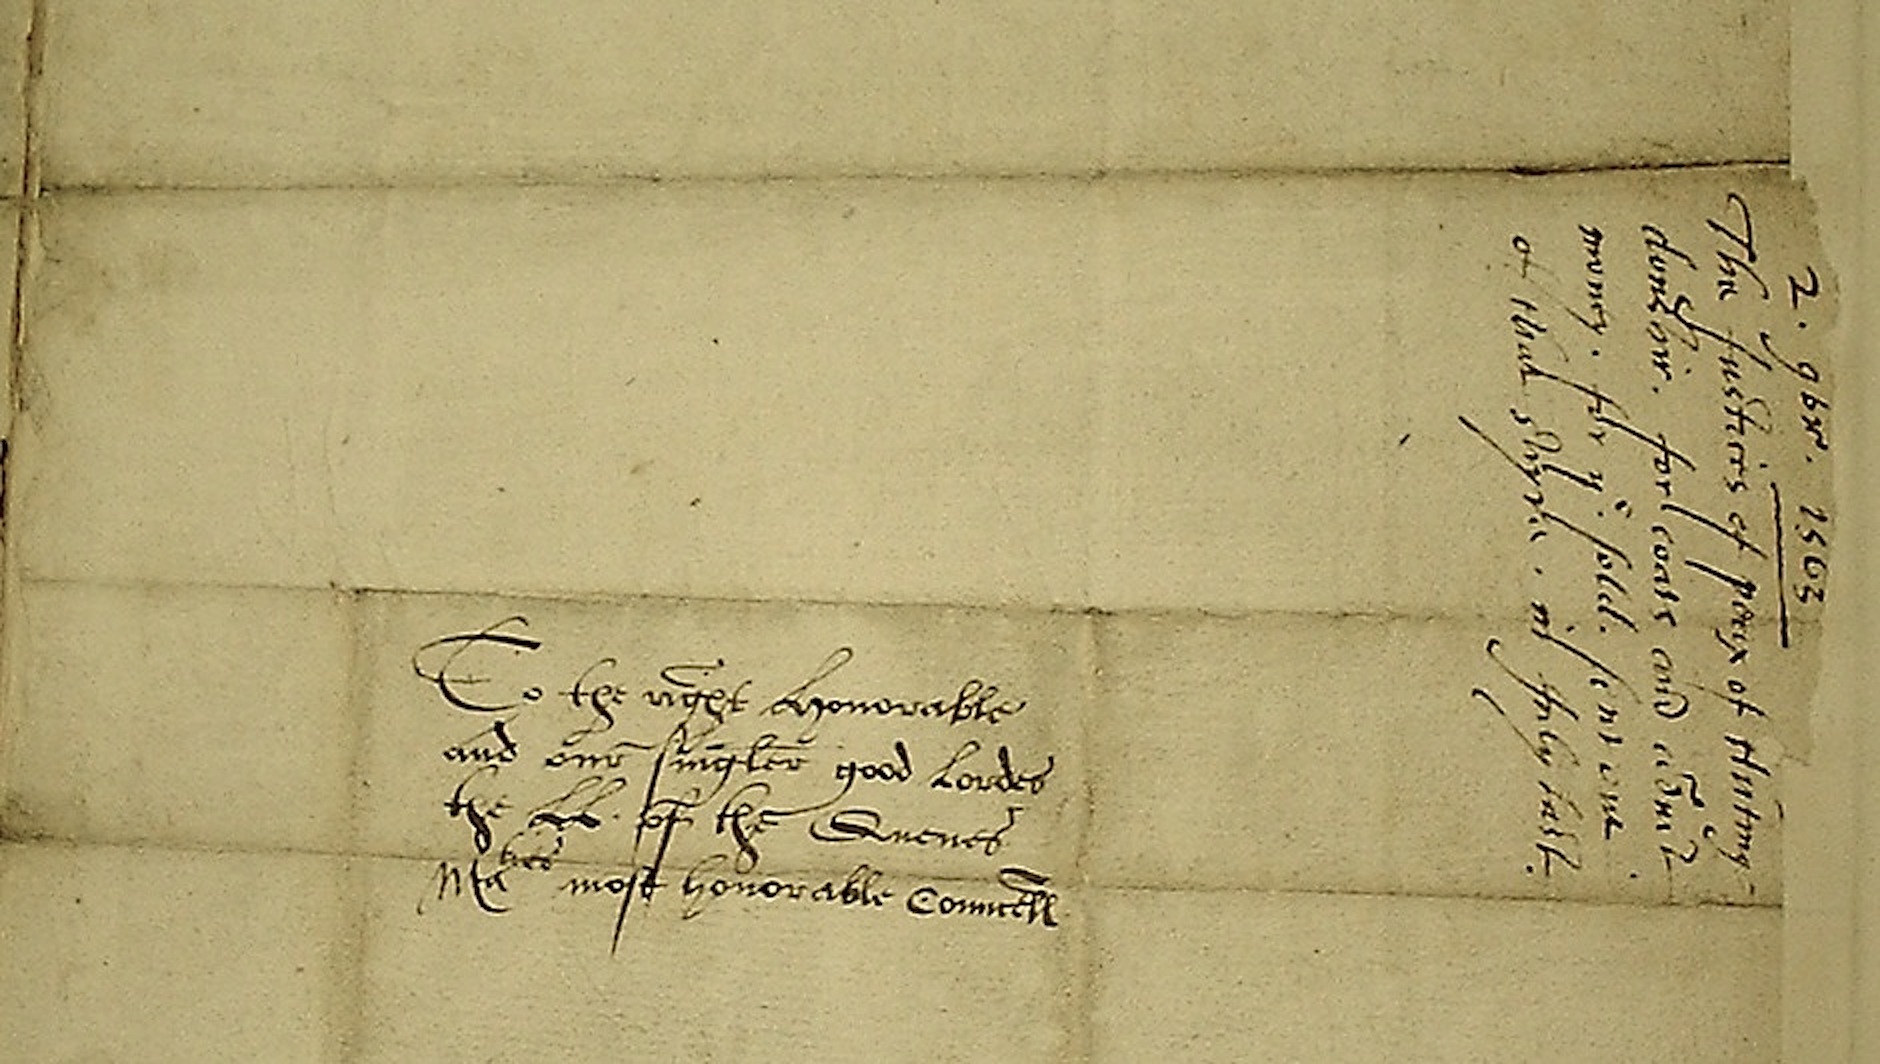 To the right honorable
and our singler good Lordes
the LL. of the Quenes
Ma^ties most honorable Councell
2. 9br. 1563
The Justices of peax of Hunting-
donshir. for coats and
money. for y^e sold. sent oute
of that shyre. in July last.